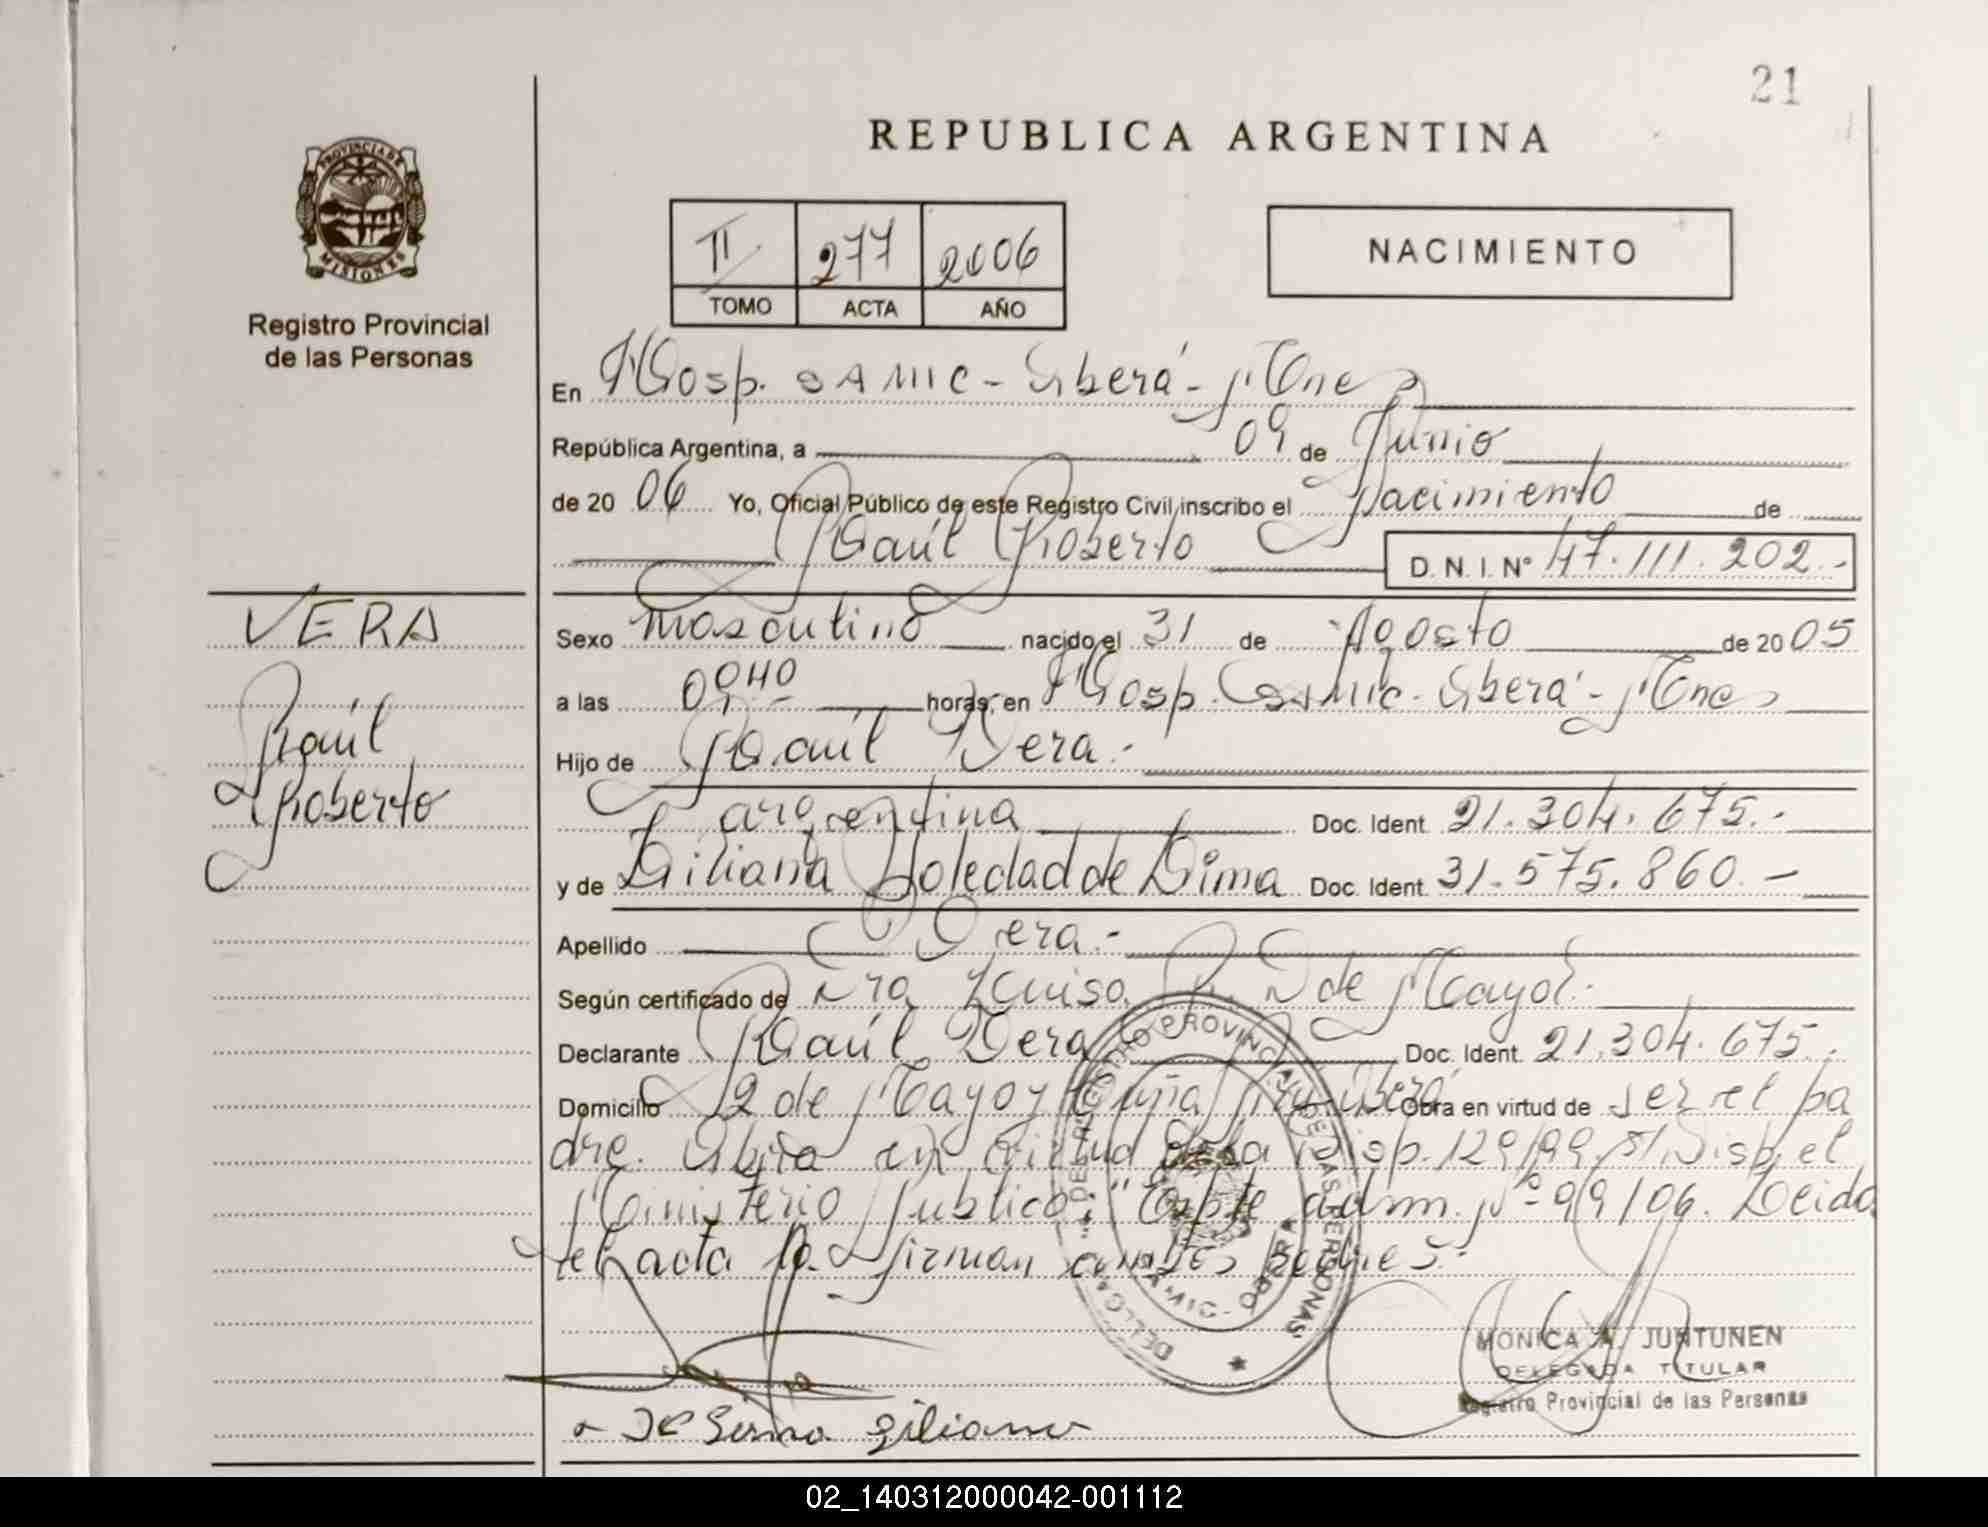 21
REPUBLICA ARGENTINA
PROVINCIA DE
MISIONES
Registro Provincial
de las Personas
II 277 2006
TOMO ACTA AÑO
NACIMIENTO
En Hosp. SAMIC - Oberá - Mnes
República Argentina, a 09 de Junio
de 20 06 Yo, Oficial Público de este Registro Civil inscribo el Nacimiento de
Raúl Roberto D.N.I. Nº 47.111.202.-
VERA
Raúl
Roberto
Sexo Masculino nacido el 31 de Agosto de 20 05
a las 09 40 horas, en Hosp. SAMIC - Oberá - Mnes
Hijo de Raúl Vera.-
argentina Doc. Ident. 21.304.675.-
y de Liliana Soledad de Lima Doc. Ident. 31.575.860.-
Apellido Vera.-
Según certificado de Dra Luisa R. D de Mayol.-
Declarante Raúl Vera Doc. Ident. 21.304.675.-
Domicilio 12 de Mayo y Oberá Obra en virtud de ser el pa
dre. Obra en virtud de la Disp. 129/99. s/Disp. el
Ministerio Publico: "Expte adm. Nº 99/06. Leida
el acta la firman ambos padres.-
REGISTRO PROVINCIAL DE LAS PERSONAS
MONICA A. JUNTUNEN
DELEGADA TITULAR
Registro Provincial de las Personas
De Lima Liliana
02_140312000042-001112